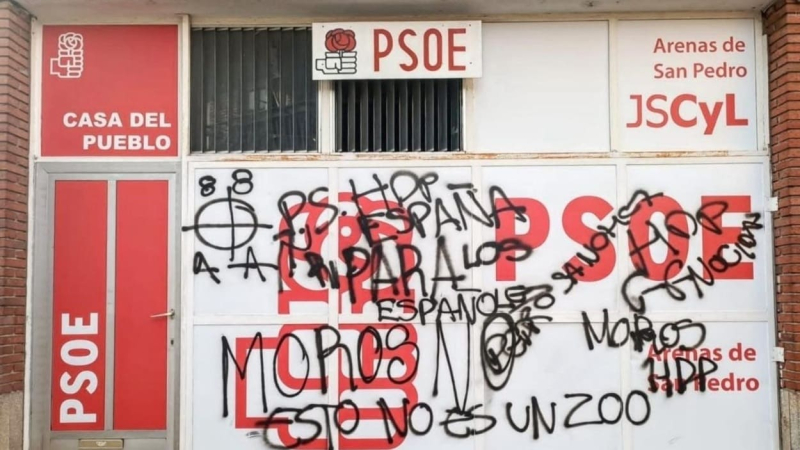 CASA DEL
PUEBLO
PSOE
Arenas de
San Pedro
JSCyL
PSOE
PSOE
Arenas de
San Pedro
8 8
A A
P.S. HDP
ESPAÑA
PARA LOS
ESPAÑOLES
HDP
MOROS NO
MOROS
HDP
ESTO NO ES UN ZOO